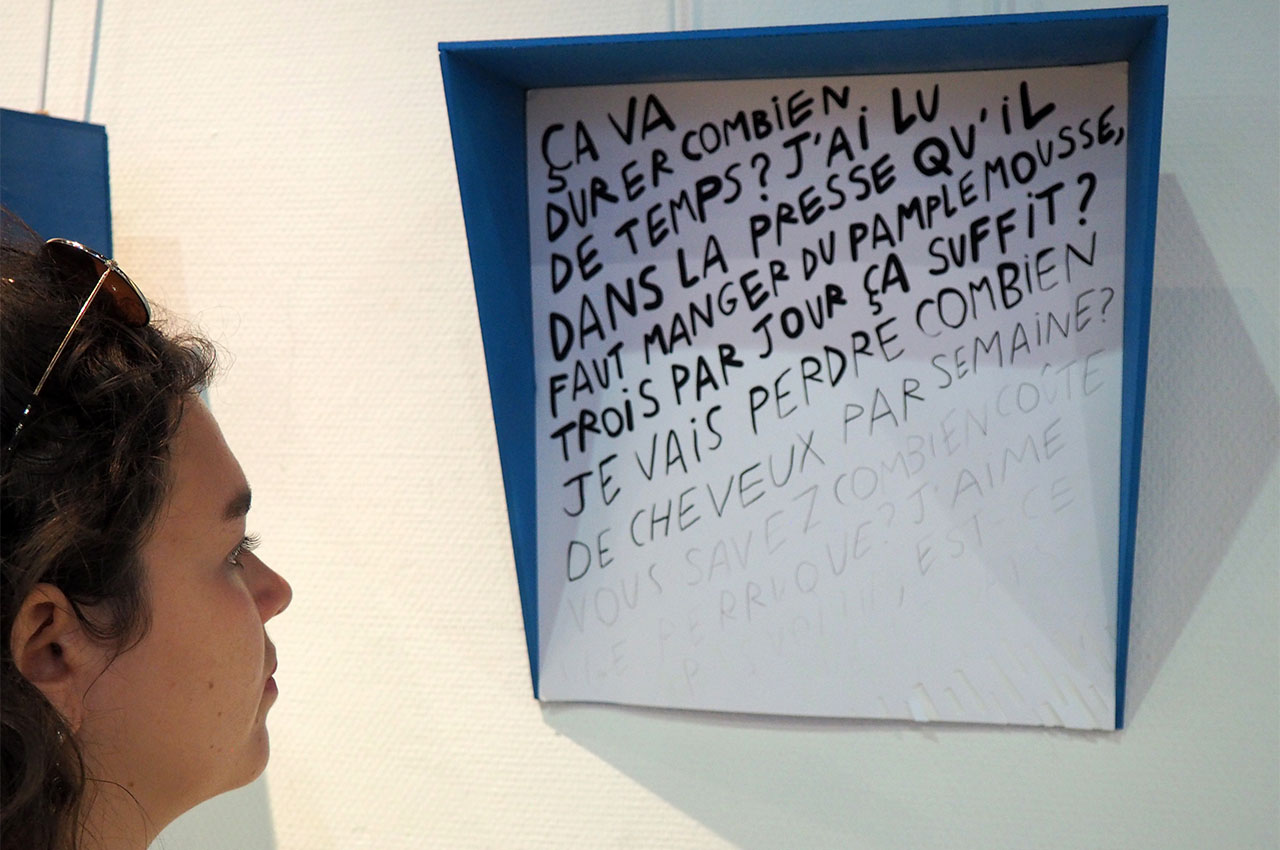 ÇA VA
DURER COMBIEN
DE TEMPS? J'AI LU
DANS LA PRESSE QU'IL
FAUT MANGER DU PAMPLEMOUSSE,
TROIS PAR JOUR ÇA SUFFIT?
JE VAIS PERDRE COMBIEN
DE CHEVEUX PAR SEMAINE?
VOUS SAVEZ COMBIEN COÛTE
PERRUQUE? J'AIME
EST-CE